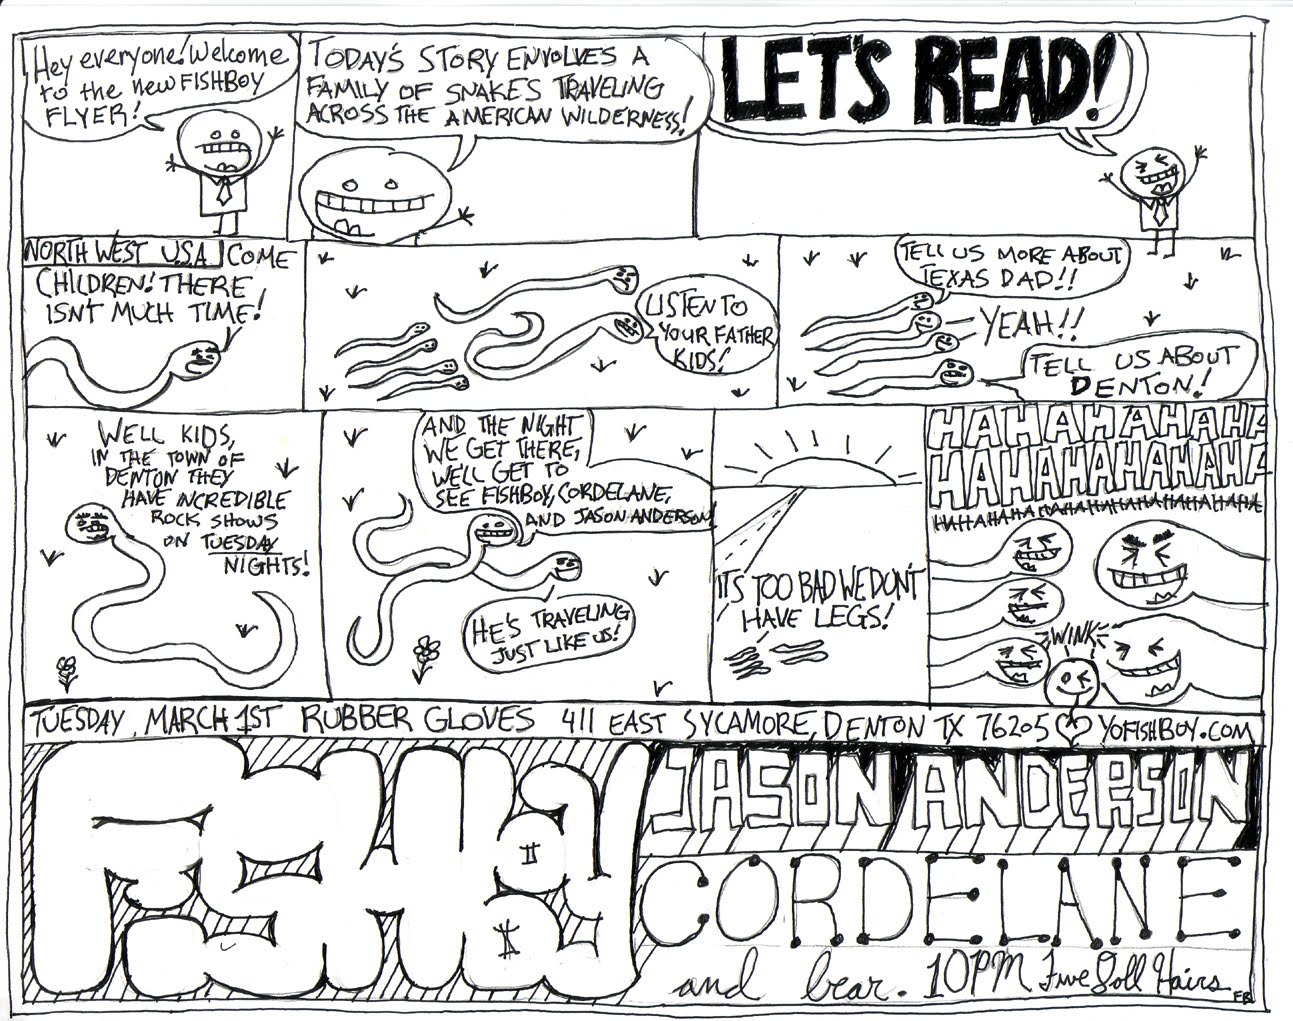 Hey everyone! Welcome
to the new FISHBOY
FLYER!
TODAY'S STORY ENVOLVES A
FAMILY OF SNAKES TRAVELING
ACROSS THE AMERICAN WILDERNESS!
LET'S READ!
NORTH WEST U.S.A.
COME
CHILDREN! THERE
ISN'T MUCH TIME!
LISTEN TO
YOUR FATHER
KIDS!
TELL US MORE ABOUT
TEXAS DAD!!
YEAH!!
TELL US ABOUT
DENTON!
WELL KIDS,
IN THE TOWN OF
DENTON THEY
HAVE INCREDIBLE
ROCK SHOWS
ON TUESDAY
NIGHTS!
AND THE NIGHT
WE GET THERE,
WE'LL GET TO
SEE FISHBOY, CORDELANE,
AND JASON ANDERSON
HE'S TRAVELING
JUST LIKE US!
IT'S TOO BAD WE DON'T
HAVE LEGS!
HAHAHAHAHA
HAHAHAHAHAHA
HAHAHAHAHAHAHAHAHAHA
WINK
TUESDAY, MARCH 1ST RUBBER GLOVES 411 EAST SYCAMORE, DENTON TX 76205 ♡ YOFISHBOY.COM
FISHBOY
JASON ANDERSON
CORDELANE
and bear. 10PM Five Doll Hairs
FB